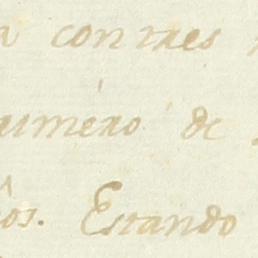 con tres
número de
ôs. Estando